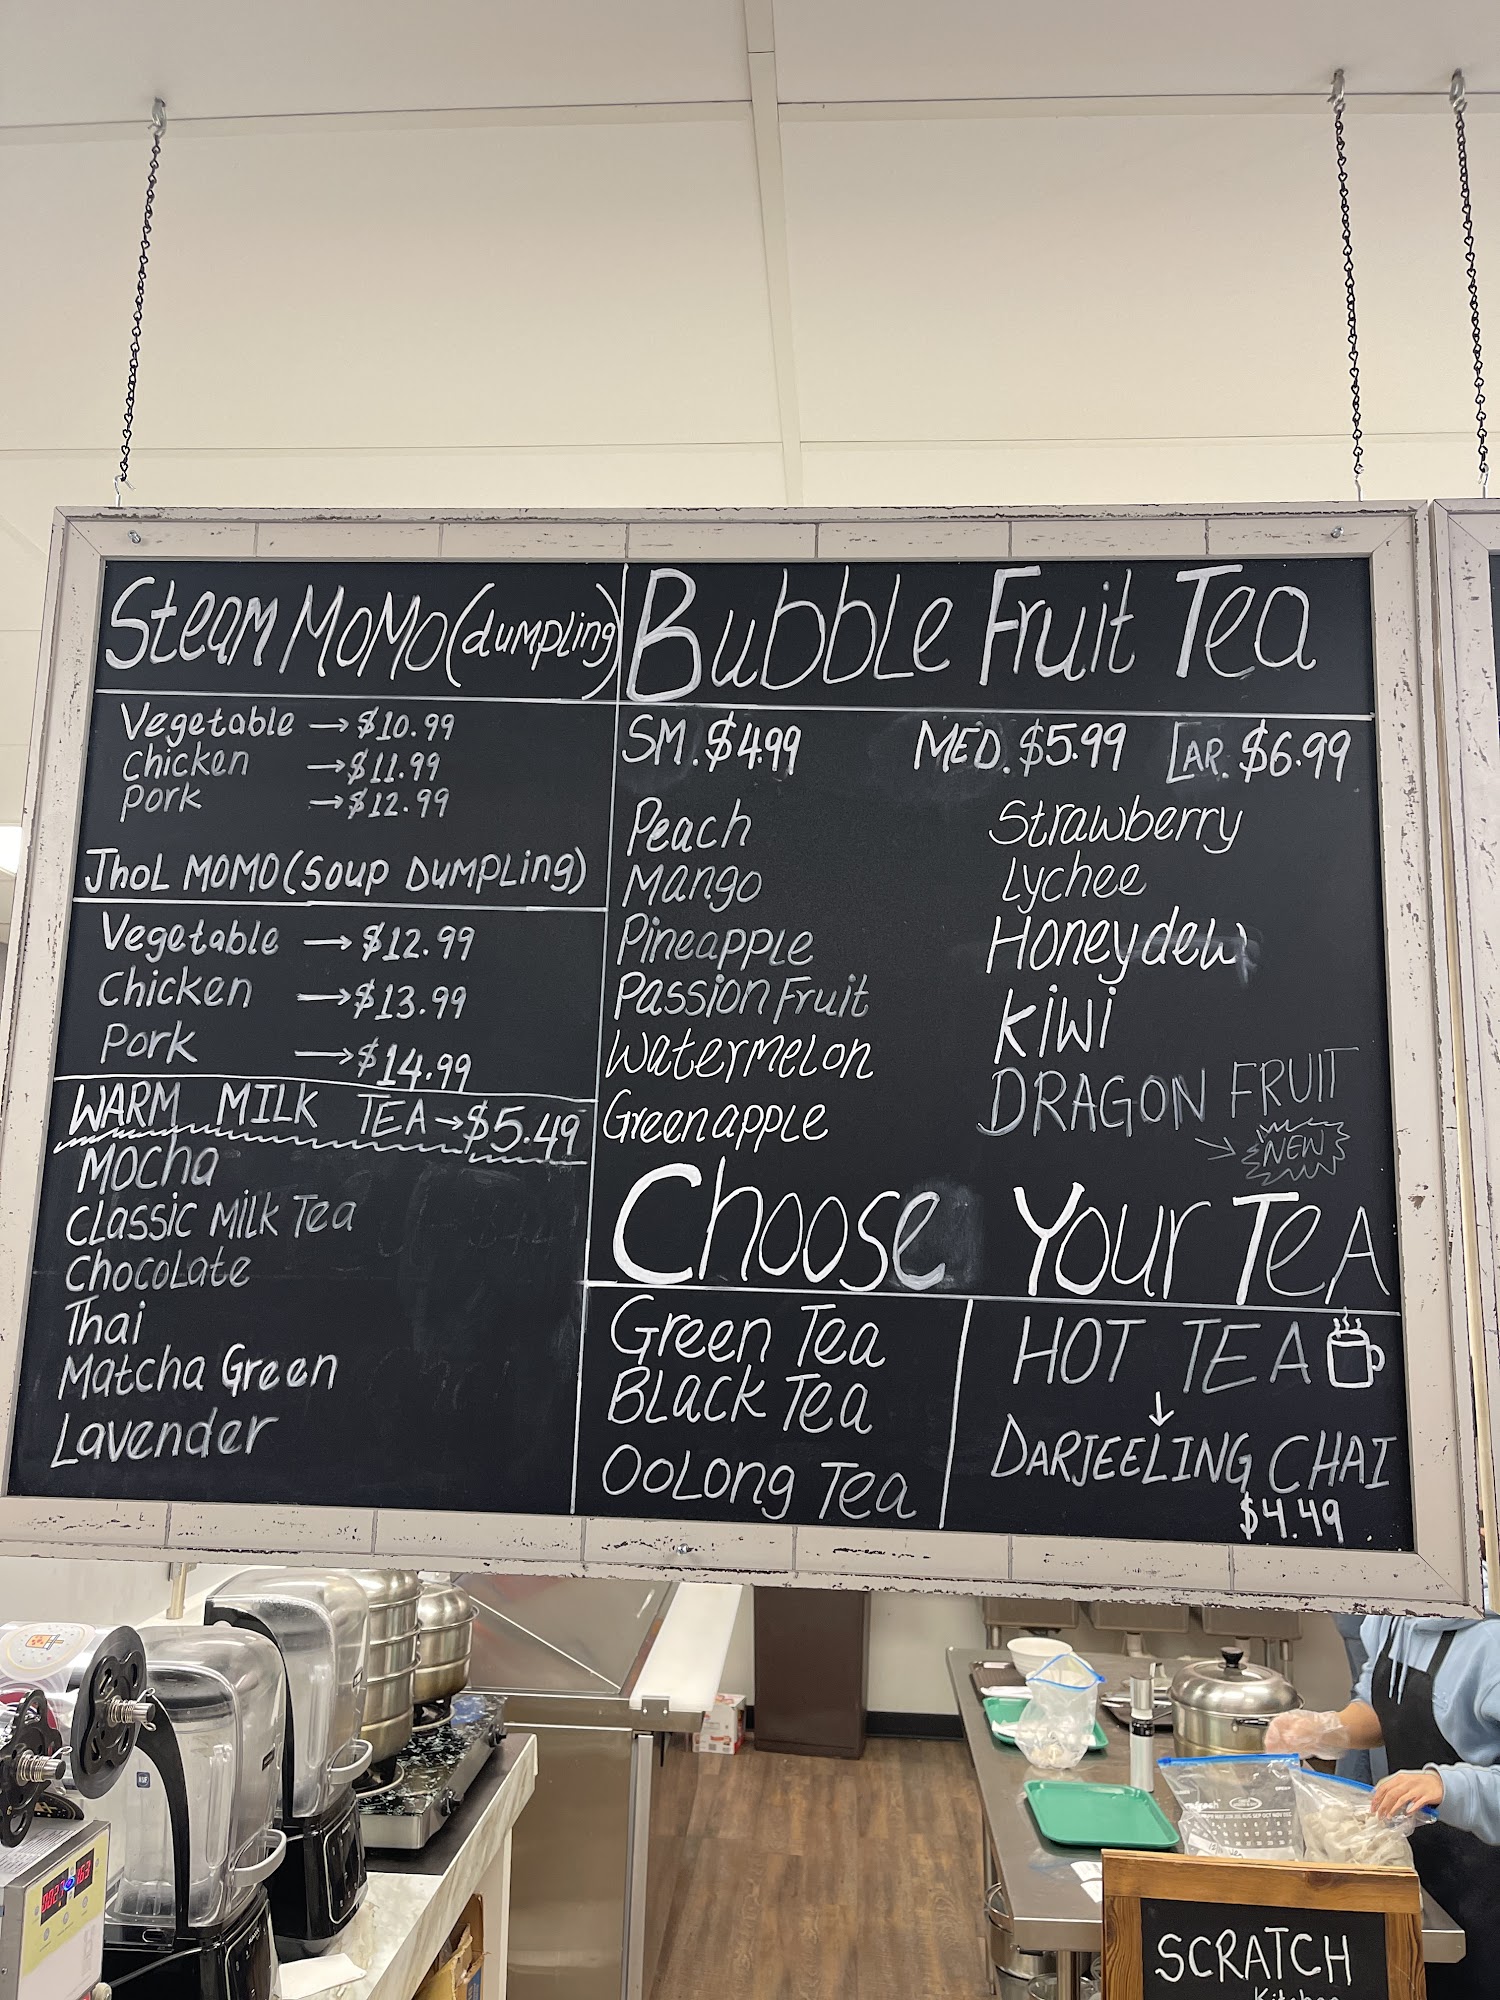 Steam MOMO (dumpling)
Vegetable → $10.99
Chicken → $11.99
Pork → $12.99
Jhol MOMO (Soup Dumpling)
Vegetable → $12.99
Chicken → $13.99
Pork → $14.99
WARM MILK TEA → $5.49
Mocha
Classic Milk Tea
Chocolate
Thai
Matcha Green
Lavender
Bubble Fruit Tea
SM. $4.99 MED. $5.99 LAR. $6.99
Peach
Mango
Pineapple
Passion Fruit
Watermelon
Greenapple
Strawberry
Lychee
Honeydew
Kiwi
DRAGON FRUIT
→ NEW
Choose Your Tea
Green Tea
Black Tea
Oolong Tea
HOT TEA
↓
DARJEELING CHAI
$4.49
SCRATCH
Kitchen